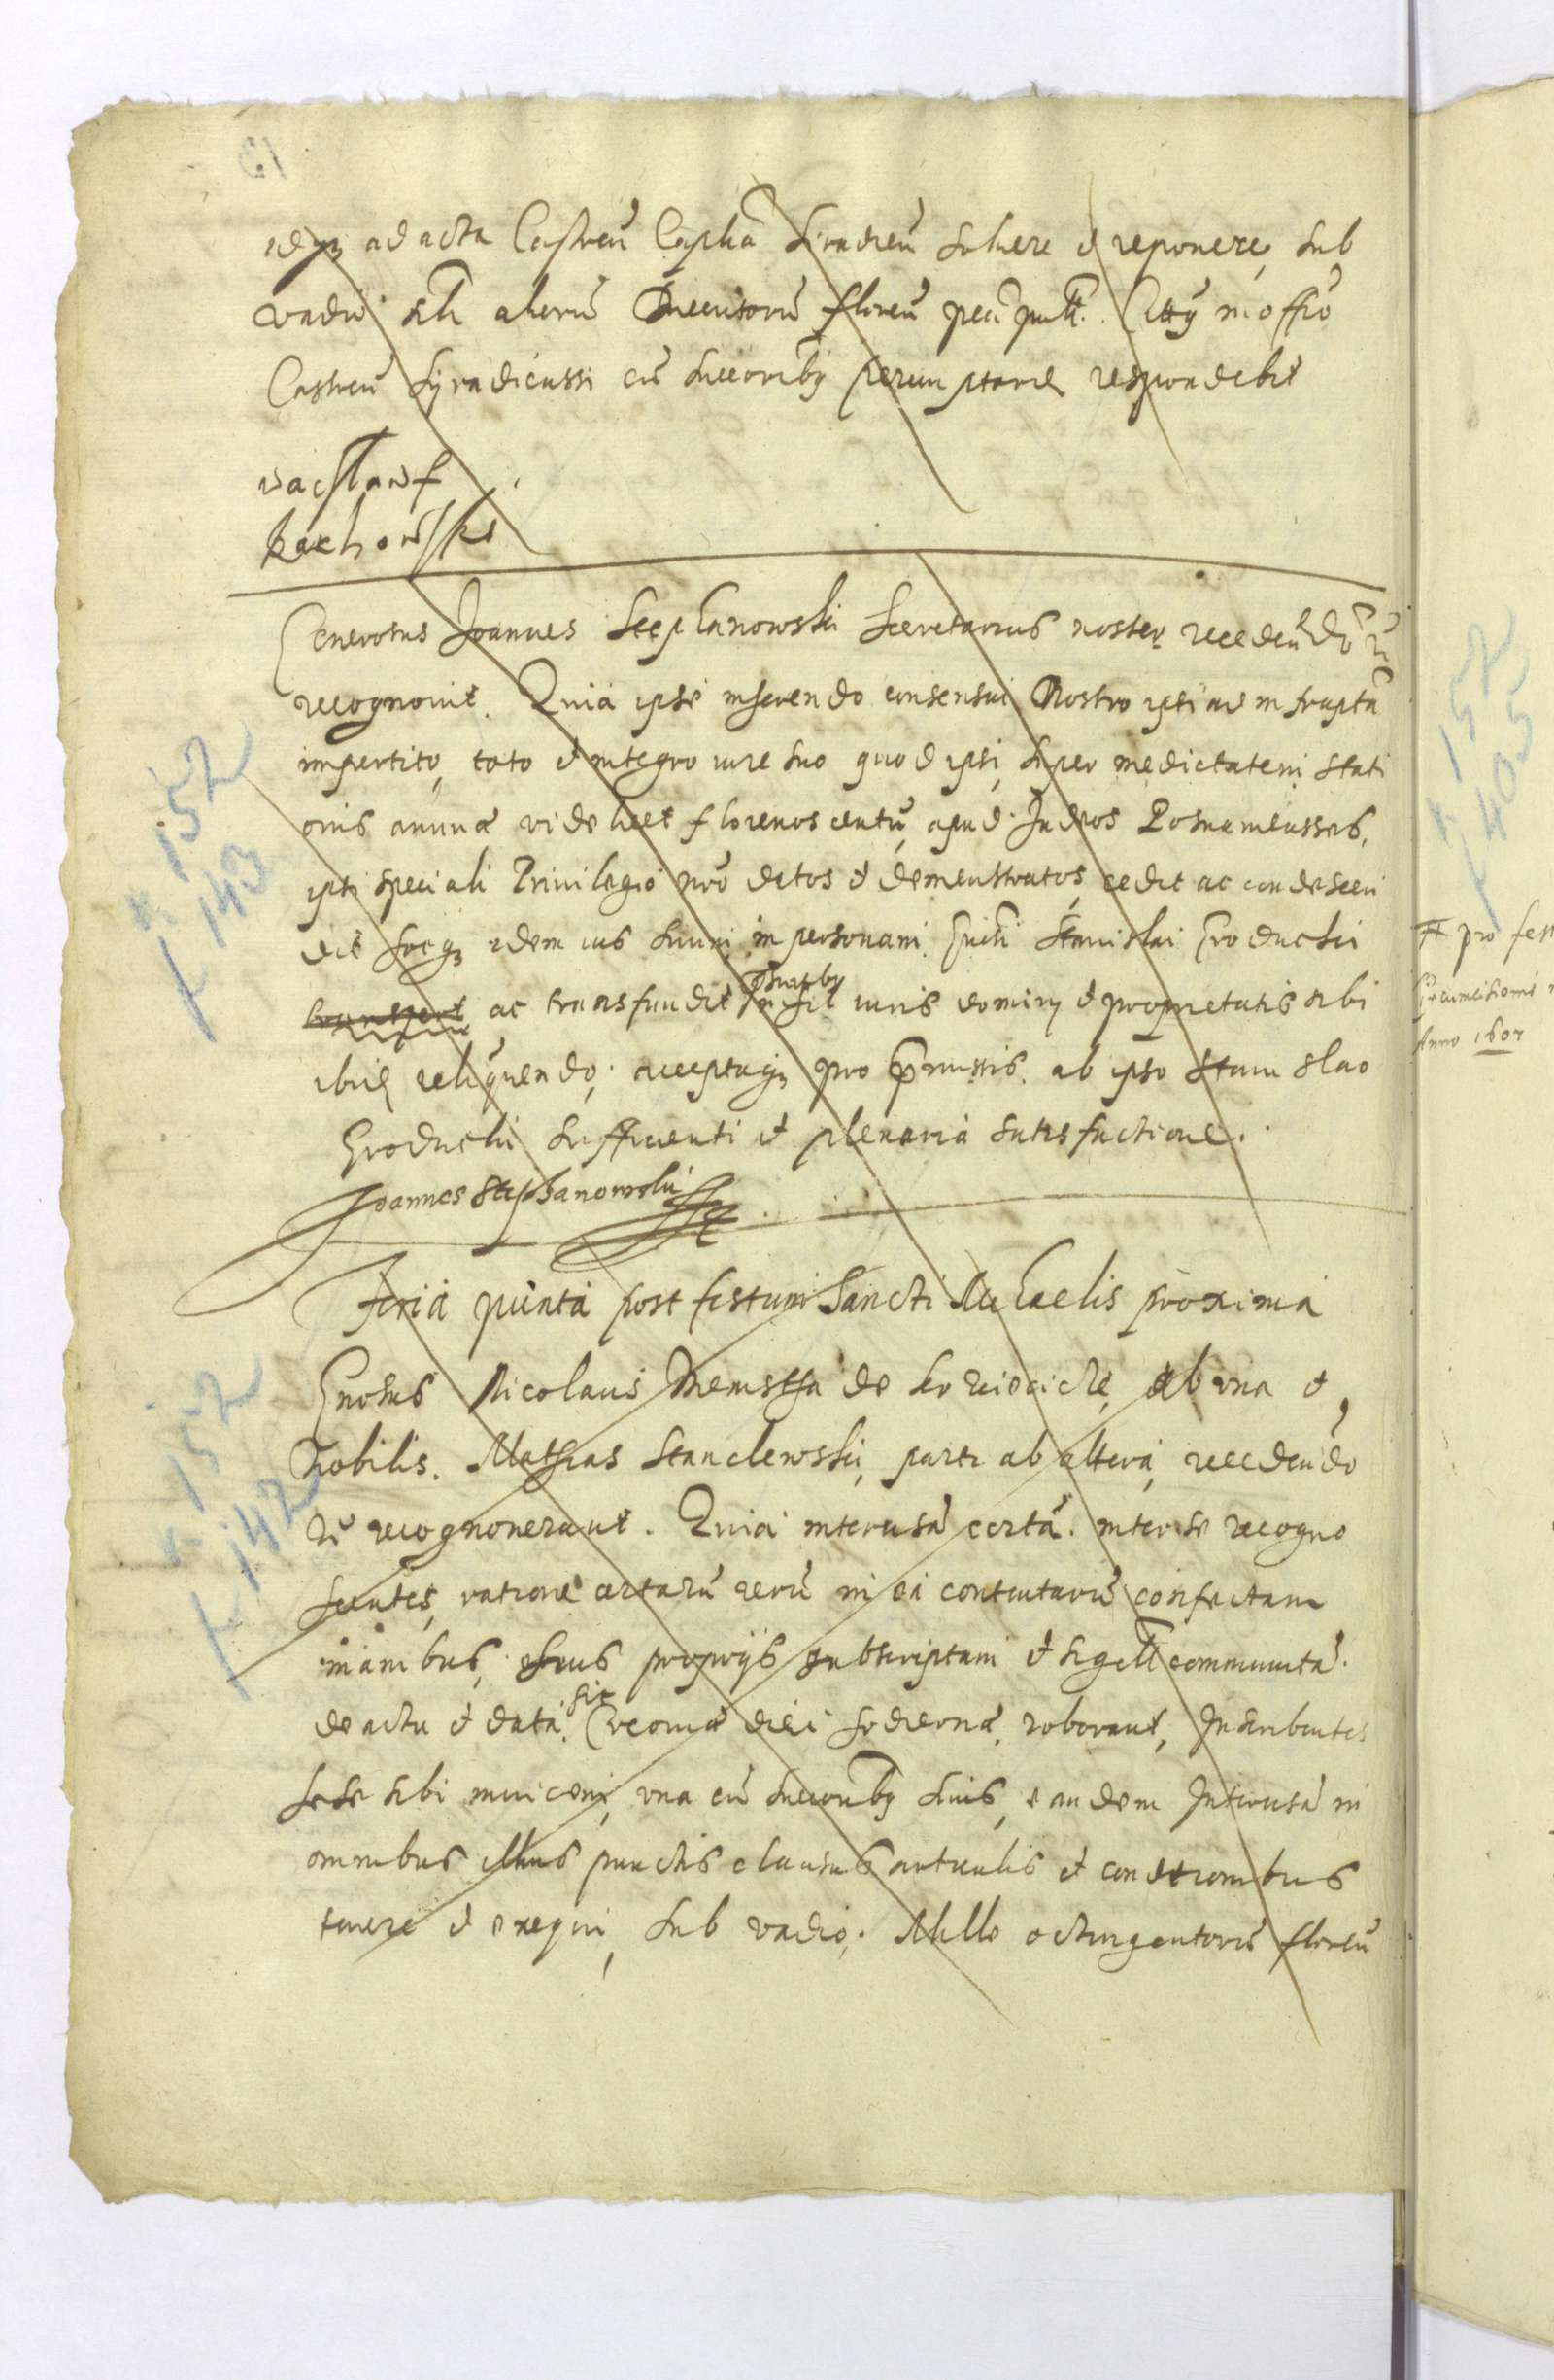 idqz ad acta Castren Capitan Siradien soluere et reponere, sub
vadio sili aliorum Ducentorum floren pecu Citatus in officio
Castren Syradiensi cum succoribus peremptorie respondebit
vacslaw
Generosus Joannes Stephanowski Secretarius noster recedendo
recognovit. Quia ipse inserendo consensui Nostro ipsi ad infrascripta
impertito, toto et integro iure suo quod ipsi, super medietatem stati
onis annuae videlicet florenos centum, apud Judeos Posnanienses,
ipsi speciali Privilegio nro datos et demonstratos, cedit ac condescen
dit hocqz idem ius suum in personam Gnsi Stanislai Grodzicki
ac transfundit nihil iuris dominy et proprietatis sibi
ibidem relinquendo; acceptaqz pro praemissis ab ipso Stanislao
Grodzicki sufficienti et plenaria satisfactione.
Joannes Stephanowski
Feria quinta post festum Sancti Michaelis proxima
Gnosus Nicolaus de ab una et
Nobilis. Mathias parte ab altera, recedendo
rum recognoverunt. Quia intercisam certam inter se recogno
scentes, ratione certarum rerum in ea contentarum confectam
manibus suis proprijs subscriptam et sigill communitam.
de actu et data. hic diei hodiernae, roborant, Inscribentes
sese sibi invicem, una cum succoribus suis, eandem Intercisam in
omnibus illius punctis clausulis articulis et conditionibus
tenere et exequi, sub vadio. Mille octingentorum floren
152
143
152
142
152
405
pro fest
Anno 1607